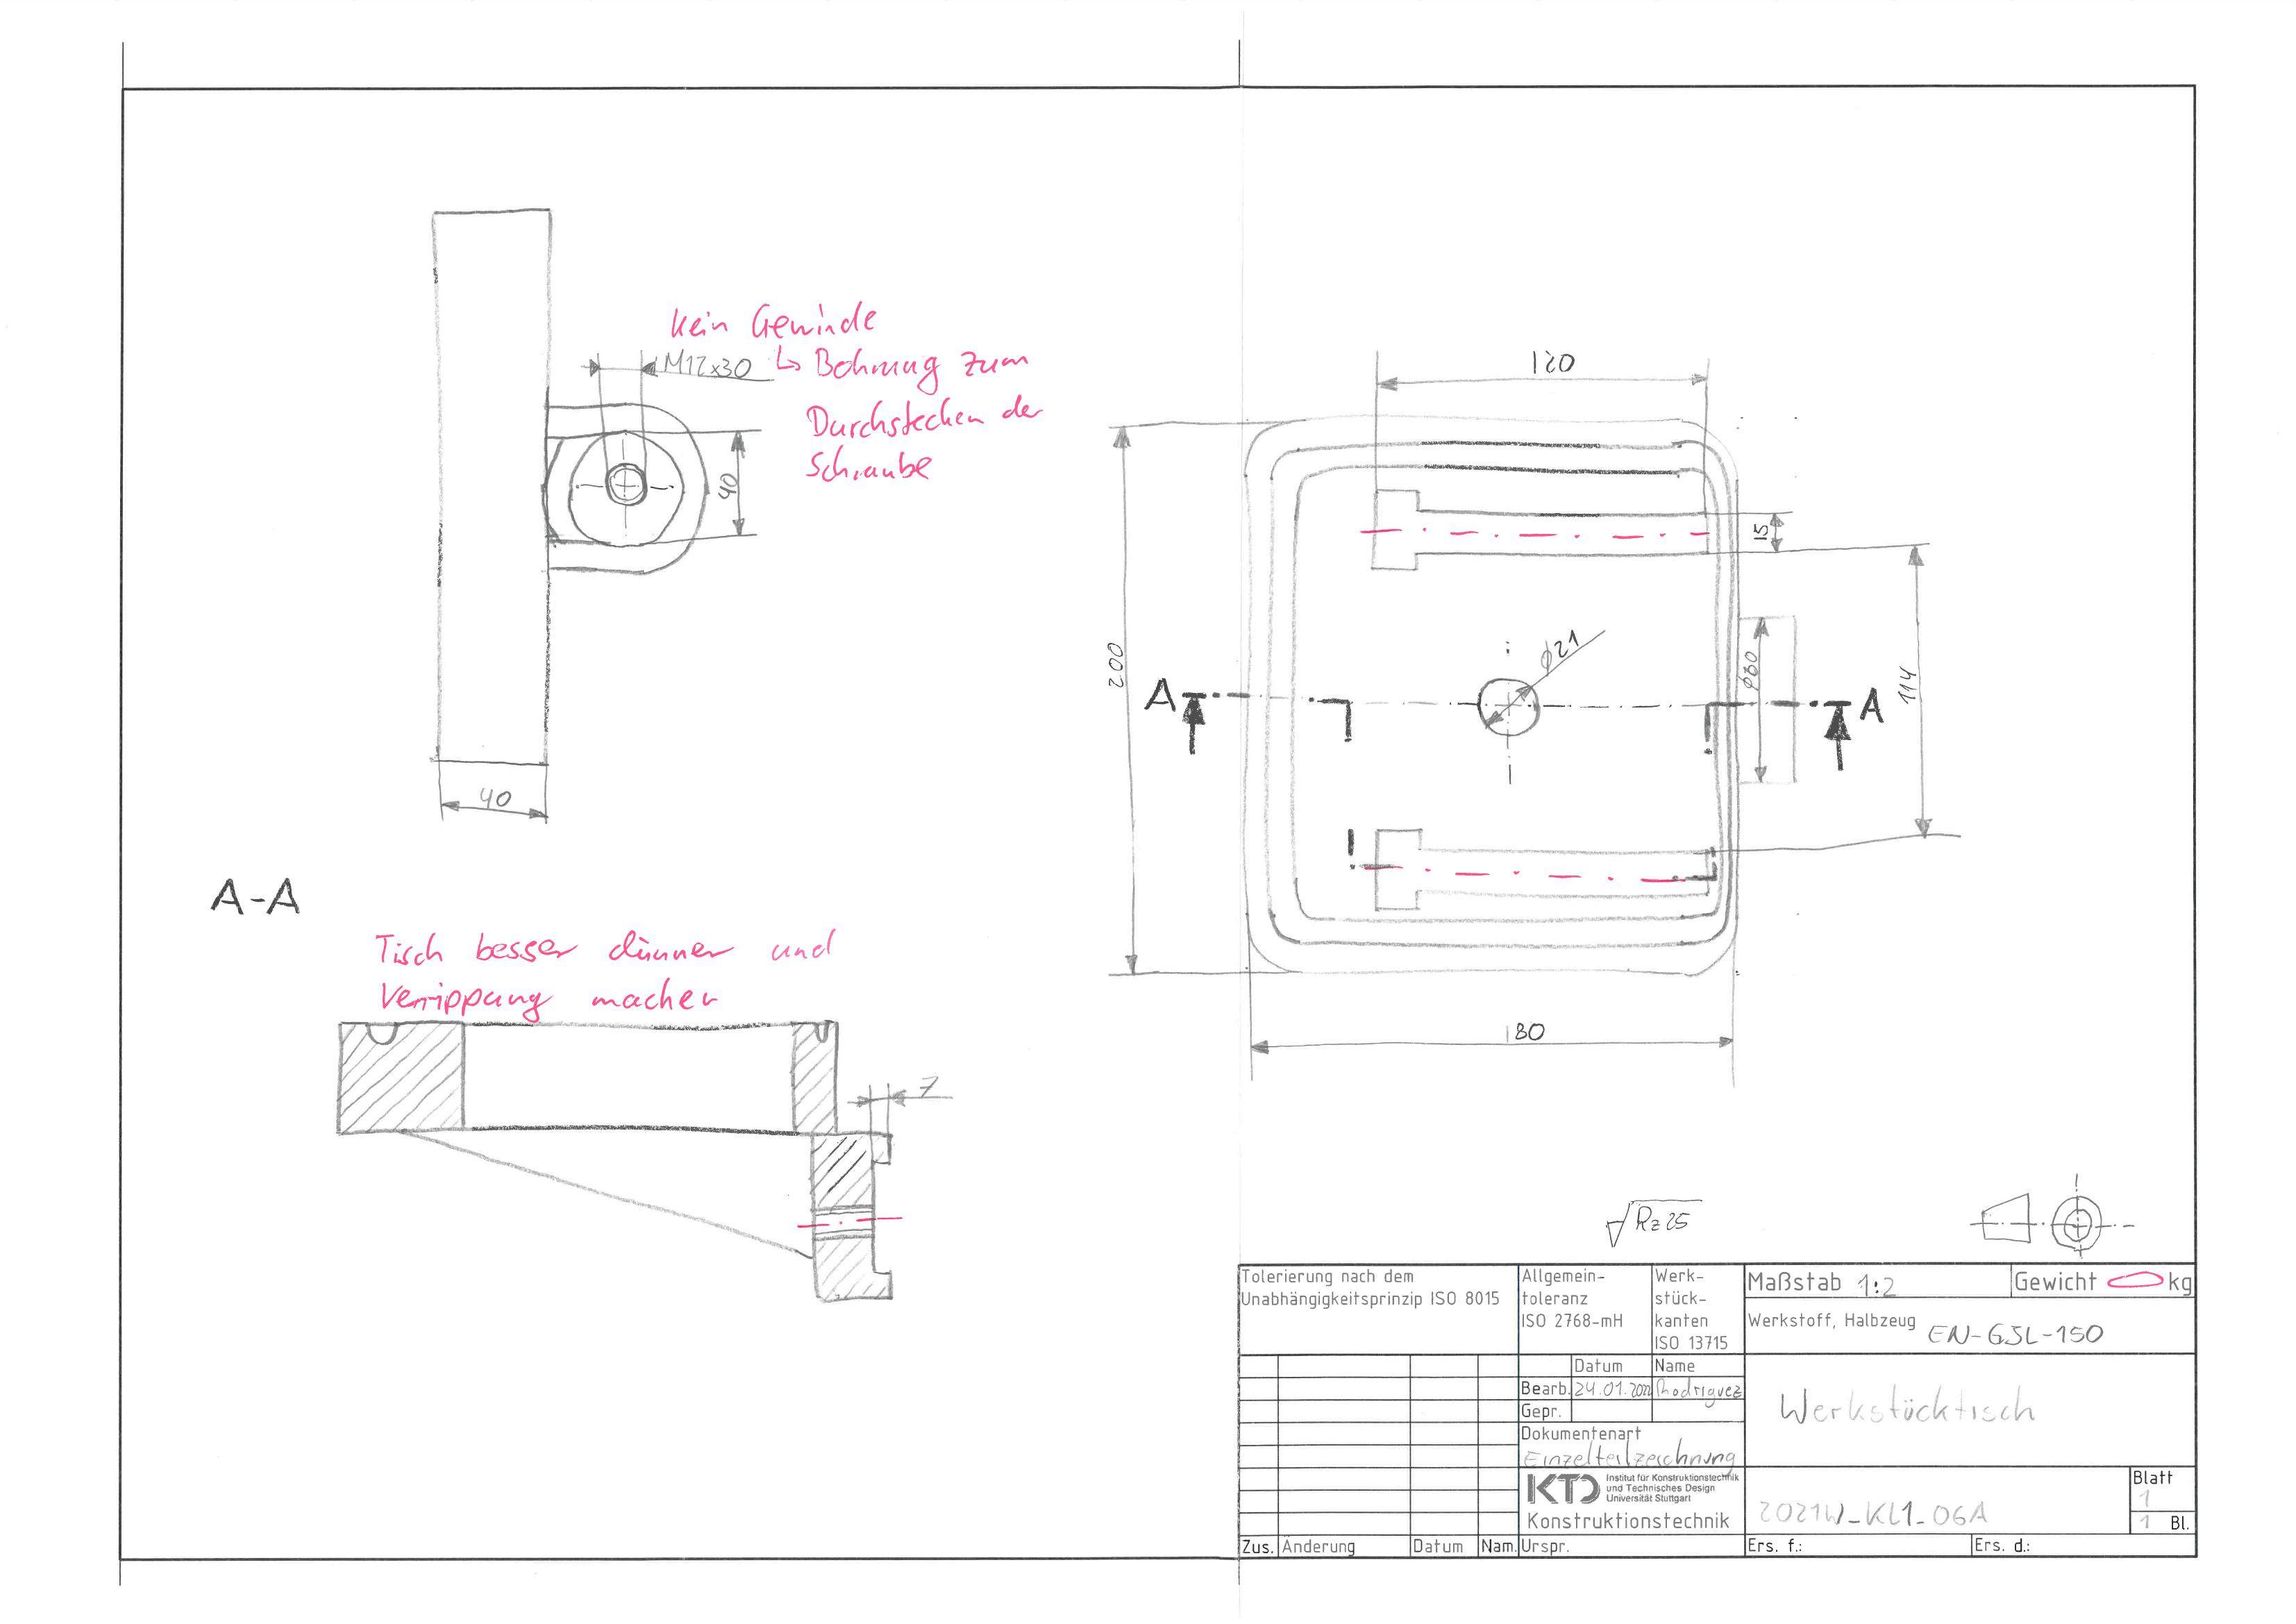 Kein Gewinde
M12x30 ↳ Bohrung zum
Durchstecken der
Schraube
40
40
120
15
Φ21
200
A
A
Φ60
114
180
A-A
Tisch besser dünner und
Verrippung machen
7
Rz 25
Tolerierung nach dem
Unabhängigkeitsprinzip ISO 8015
Allgemein-
toleranz
ISO 2768-mH
Werk-
stück-
kanten
ISO 13715
Maßstab 1:2
Gewicht kg
Werkstoff, Halbzeug EN-GJL-150
Datum Name
Bearb. 24.01.2022 Rodriguez
Gepr.
Dokumentenart
Einzelteilzeichnung
Werkstücktisch
KTD Institut für Konstruktionstechnik
und Technisches Design
Universität Stuttgart
Konstruktionstechnik
2021W_KL1_06A
Blatt
1
1 Bl.
Zus. Änderung Datum Nam. Urspr. Ers. f.: Ers. d.: